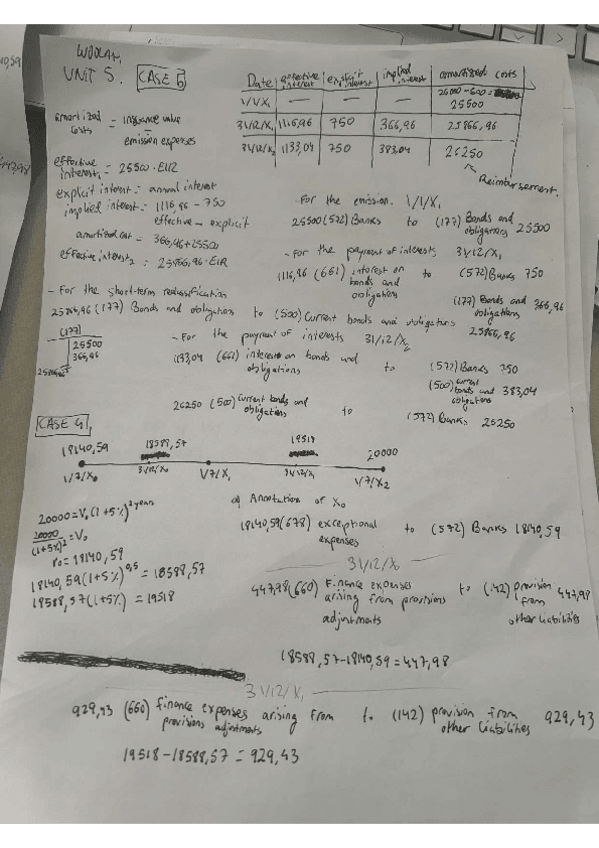 UNIT 5. CASE 5
Date effective interest explicit interest implied interest amortized costs
1/1/X1 — — — 26000-500= 25500
31/12/X1 1116,96 750 366,96 25866,96
31/12/X2 1133,04 750 383,04 26250
Reimbursement.
amortized costs = issuance value - emission expenses
effective interest1 = 25500·EIR
explicit interest: annual interest
implied interest: 1116,96 - 750
effective - explicit
amortized cost = 366,96+25500
effective interest2 = 25866,96·EIR
-For the emission. 1/1/X1
25500 (572) Banks to (177) Bonds and obligations 25500
-For the payment of interests 31/12/X1
1116,96 (661) interest on bonds and obligations to (572) Banks 750
(177) Bonds and obligations 366,96
-For the short-term reclassification
25866,96 (177) Bonds and obligations to (500) Current bonds and obligations 25866,96
(177)
25500
366,96
25866,96
-For the payment of interests 31/12/X2
1193,04 (661) interest on bonds and obligations to (572) Banks 750
(500) current bonds and obligations 383,04
26250 (500) Current bonds and obligations to (572) Banks 26250
CASE 4
18140,59 18588,57 19518 20000
1/7/X0 31/12/X0 1/7/X1 31/12/X1 1/7/X2
20000=V0(1+5%)^2 years
20000/(1+5%)^2=V0
V0=18140,59
18140,59(1+5%)^0,5=18588,57
18588,57(1+5%) = 19518
a) Annotation of X0
18140,59 (678) exceptional expenses to (572) Banks 18140,59
31/12/X0
447,98 (660) Finance expenses arising from provisions adjustments to (142) provision from other liabilities 447,98
18588,57-18140,59=447,98
31/12/X1
929,43 (660) finance expenses arising from provisions adjustments to (142) provision from other liabilities 929,43
19518-18588,57=929,43